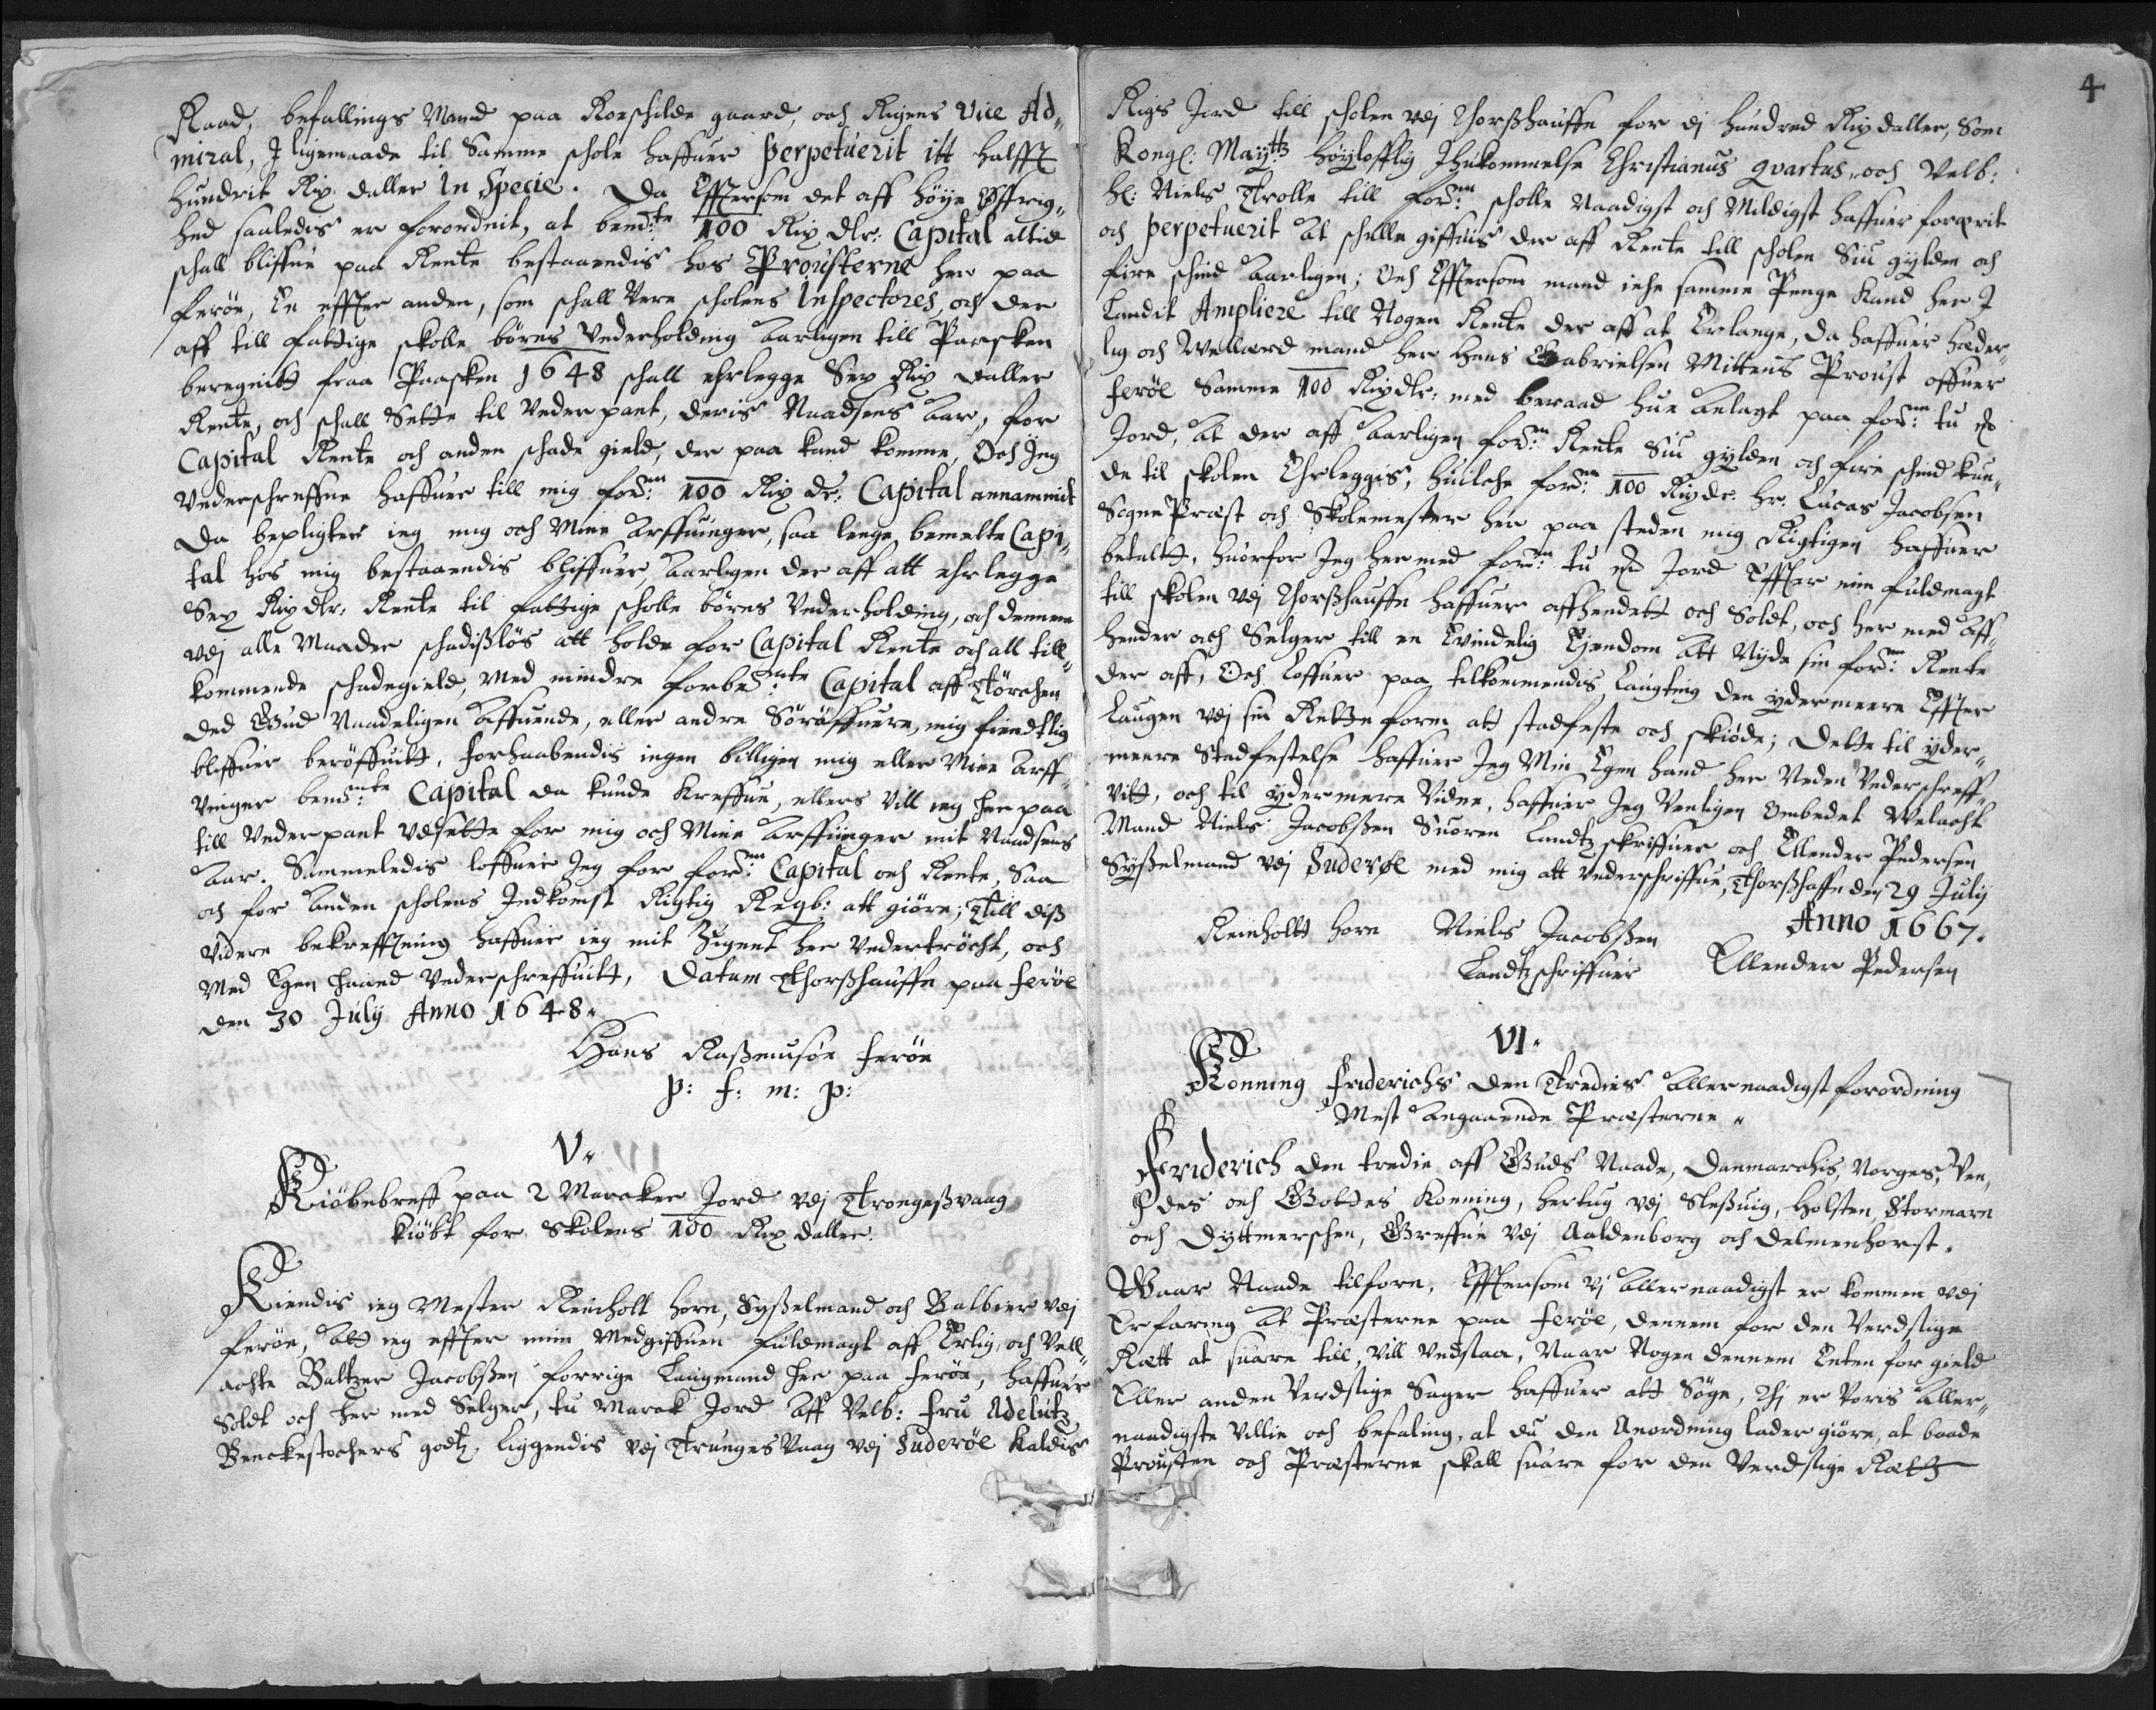 Raad, befallings Mand paa Roeschilde gaard, och Rigens Vice Ad„
miral, J ligemaade til Samme schole haffuer perpetuerit itt halfft
hundrit Rix daller in Specie. Da Efftersom det aff høye Øffrig„
hed saaledis er forordnit, at bemte 100 Rix dlr: Capital altid
schall bliffue paa Rente bestaaendis hos Prousterne her paa
ferøe, En effter anden, som schall Vere scholens Inspectores, och der
aff till fattige skolle børns Vnderholdning aarligen till Paasken
beregnitt fraa Paasken 1648 schall ehrlegge Sex Rix daller
Rente, och schall Sette til Vnderpant, deris Naadsens Aar, for
Capital Rente och anden schade gield, der paa kand komme, Och Jeg
Vnderschreffne haffuer till mig fornn: 100 Rix dr: Capital annammit
Da bepligter ieg mig och Mine Arffuinger, saa lenge bemelte Capi„
tal hos mig bestaaendis bliffuer, aarligen der aff att ehrlegge
Sex Rix dlr: Rente til fattige scholle børns Vnderholding, och dennem
vdj alle Maader schadisløs att holde for Capital Rente och all till„
kommende schadegield, Med mindre forbemte Capital aff Törchen
ded Gud Naadeligen affuende, eller andre Söröffuere, mig fiendtlig
bliffuer beröffuitt, forhaabendis ingen billigen mig eller Mine Arff„
vinger bemte Capital da kunde kreffue, ellers vill ieg her paa
till Vnderpant Vdsette for mig och Mine Arffuinger mit Naadsens
Aar. Sammeledis loffuer Jeg for fornn: Capital och Rente, Saa
och for Anden scholens Indkomst Rigtig Regb: att giöre; Till diß
Videre bekrefftning haffuer ieg mit Zignet her Vndertröcht, och
Med Egen Haand Vnderschreffuitt, Datum Thorßhauffn paa ferøe
den 30 July Anno 1648.
Hans Raßmusön ferøe
p: f: m: p:
V.
Kiöbebreff paa 2 Marcker Jord vdj Trongeßvaag
kiöbt for Skolens 100 Rix daller.
Kiendis ieg Mester Reinholt Horn, Syßelmand och Balbier vdj
ferøe, Att ieg effter min Medgiffuen fuldmagt aff Erlig och Vell„
achte Baltzer Jacobßen forrige Laugmand her paa ferøe, haffuer
Soldt och her med Selger, tu Marck Jord Aff Velb: fru Adelutz
Benckestochers godtz, liggendis vdj Trunges Vaag vdj Suderøe kaldis
4
Kigs Jord till scholen vdj Thorßhauffn for ej hundred Rixdaller, Som
Kongl: Maytts høylofflig Ihukommelse Christianus Qvartus, och Velb:
Hl: Niels Trolle till fornn: scholle Naadigst och Mildigst haffuer forærit
och perpetuerit At schulle giffuis der aff Rente till scholen Siu gylden och
fire schind Aarligen; Och Efftersom mand iche samme Penge kand her J
Landit Ampliere till Nogen Rente der aff at Erlange, da haffuer Hæder„
lig och Wellærd mand her Hans Gabrielsen Mitteus Proust offuer
ferøe Samme 100 Rixdlr: med beraad hue Anlagt paa fornn: tu mk
Jord, At der aff Aarligen forn: Rente Siu gylden och fire schind kun„
de til skolen Ehrleggis, huilche fornn: 100 Rixdr: Hr: Lucas Jacobsen
Sogne Præst och Skolemester her paa steden mig Rigtigen haffuer
betaltt, huorfor Jeg her med forn: tu mk Jord Effter min fuldmagt
till skolen vdj Thorßhauffn haffuer affhendett och Soldt, och her med Aff„
hender och Selger till en Evindelig Ejendom Att Nyde sin fornn: Rente
der aff, Och Loffuer paa tilkommendis Laugting den ydermeere Effter
Laugen vdj sin Rette form att stadfeste och skiøde; Dette til yder„
meere Stadfestelse haffuer Jeg Min Egen Hand her Neden Vnderschreff„
vitt, och til ydermere Vidne, haffuer Jeg Venligen Ombedet Welacht
Mand Niels Jacobßen Suoren Landtz skriffuer och Ellender Pedersen
Syßelmand vdj Suderøe med mig att Vnderschriffue, Thorßhaffn den 29 July
Anno 1667.
Reinholtt Horn Niels Jacobßen
Landtzschriffuer Ellender Pedersen
VI.
Konning Friderichs den Tredies Aller naadigst forordning
Mest Angaaende Præsterne.
Friderich den tredie aff Guds Naade, Danmarchis, Norges, Ven„
des och Gottes Konning, Hertug vdj Sleßuig, Holsten, Stormarn
och Dyttmerschen, Greffue vdj Aaldenborg och Delmenhorst.
Waar Naade tilforn, Efftersom vj Aller naadigst er kommen vdj
Erfaring At Præsterne paa ferøe, dennem for den Verdslige
Rætt at suare till, vill Vndslaa, Naar Nogen dennem Enten for gield
Eller anden Verdslige Sager haffuer att Søge, Thj er Voris Aller„
naadigste Villie och befaling, at du den Anordning lader giöre, at baade
Prousten och Præsterne skall suare for den Verdslige Rætt